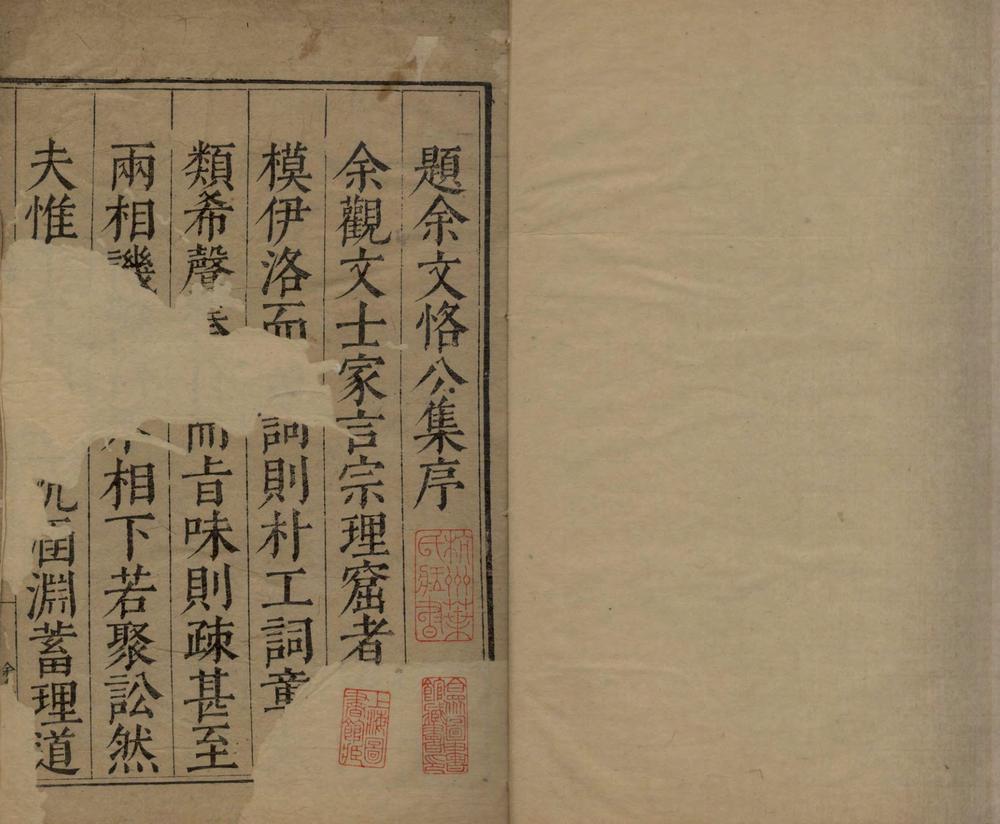 題余文恪公集序
余觀文士家言宗理窟者
模伊洛而詞則朴工詞章
類希聲而旨味則疎甚至
兩相譏相下若聚訟然
夫惟淵蓄理道
杭州葉氏藏書
合眾圖書館藏書印
上海圖書館藏